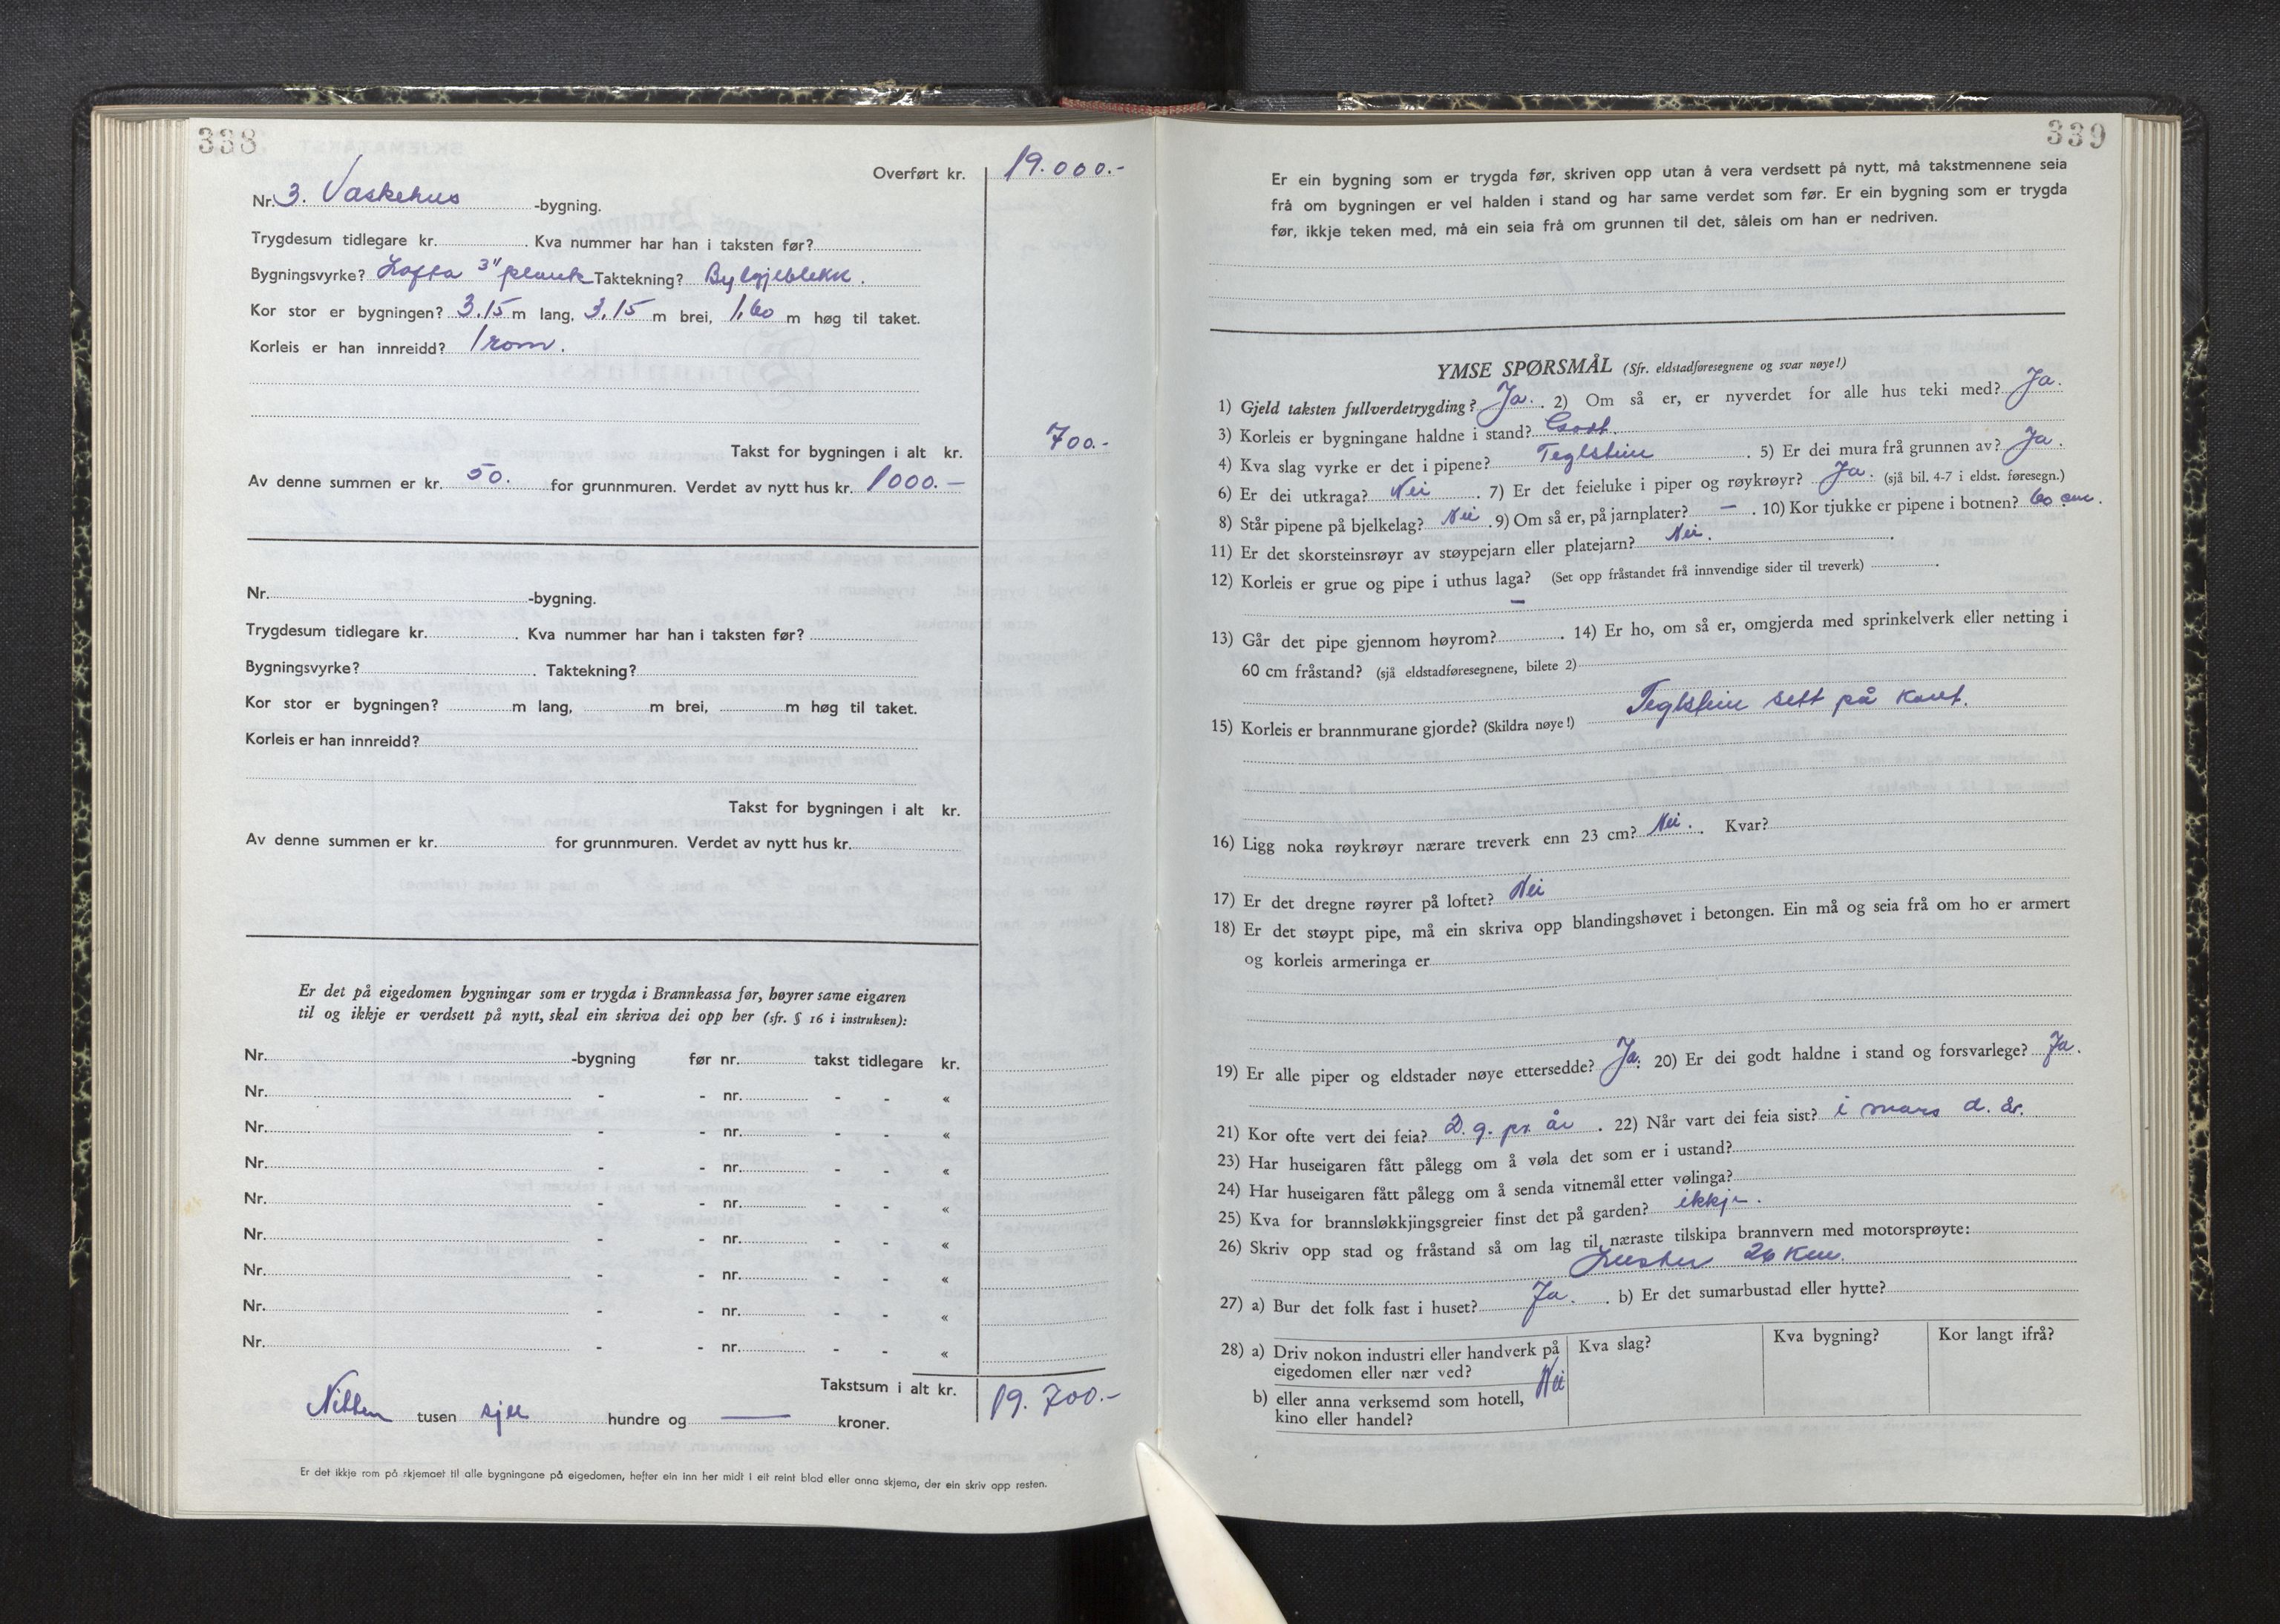 338
Overført kr. 19.000.-
Nr. 3. Vaskehus -bygning.
Trygdesum tidlegare kr. . Kva nummer har han i taksten før?
Bygningsvyrke? Lafta 3" plank Taktekning? Bylgjeblekk .
Kor stor er bygningen? 3.15 m lang, 3.15 m brei, 1,60 m høg til taket.
Korleis er han innreidd? 1 rom.
Takst for bygningen i alt kr. 700.-
Av denne summen er kr. 50. for grunnmuren. Verdet av nytt hus kr. 1000.-
Nr. -bygning.
Trygdesum tidlegare kr. . Kva nummer har han i taksten før?
Bygningsvyrke? . Taktekning?
Kor stor er bygningen? m lang, m brei, m høg til taket.
Korleis er han innreidd?
Takst for bygningen i alt kr.
Av denne summen er kr. for grunnmuren. Verdet av nytt hus kr.
Er det på eigedomen bygningar som er trygda i Brannkassa før, høyrer same eigaren
til og ikkje er verdsett på nytt, skal ein skriva dei opp her (sfr. § 16 i instruksen):
Nr. -bygning før nr. takst tidlegare kr.
Nr. - - nr. - - «
Nr. - - nr. - - «
Nr. - - nr. - - «
Nr. - - nr. - - «
Nr. - - nr. - - «
Nr. - - nr. - - «
Nr. - - nr. - - «
Nr. - - nr. - - «
Takstsum i alt kr. 19.700.-
Nitten tusen sju hundre og — kroner.
Er det ikkje rom på skjemaet til alle bygningane på eigedomen, hefter ein inn her midt i eit reint blad eller anna skjema, der ein skriv opp resten.
339
Er ein bygning som er trygda før, skriven opp utan å vera verdsett på nytt, må takstmennene seia
frå om bygningen er vel halden i stand og har same verdet som før. Er ein bygning som er trygda
før, ikkje teken med, må ein seia frå om grunnen til det, såleis om han er nedriven.
YMSE SPØRSMÅL (Sfr. eldstadføresegnene og svar nøye!)
1) Gjeld taksten fullverdetrygding? Ja. . 2) Om så er, er nyverdet for alle hus teki med? Ja.
3) Korleis er bygningane haldne i stand? Godt.
4) Kva slag vyrke er det i pipene? Teglstein . 5) Er dei mura frå grunnen av? Ja .
6) Er dei utkraga? Nei . 7) Er det feieluke i piper og røykrøyr? Ja. (sjå bil. 4-7 i eldst. føresegn.)
8) Står pipene på bjelkelag? Nei . 9) Om så er, på jarnplater? — . 10) Kor tjukke er pipene i botnen? 60 cm.
11) Er det skorsteinsrøyr av støypejarn eller platejarn? Nei. .
12) Korleis er grue og pipe i uthus laga? (Set opp fråstandet frå innvendige sider til treverk) .
—
13) Går det pipe gjennom høyrom? . 14) Er ho, om så er, omgjerda med sprinkelverk eller netting i
60 cm fråstand? (sjå eldstadføresegnene, bilete 2)
15) Korleis er brannmurane gjorde? (Skildra nøye!) Teglstein sett på kant.
16) Ligg noka røykrøyr nærare treverk enn 23 cm? Nei. . Kvar?
17) Er det dregne røyrer på loftet? Nei
18) Er det støypt pipe, må ein skriva opp blandingshøvet i betongen. Ein må og seia frå om ho er armert
og korleis armeringa er
19) Er alle piper og eldstader nøye ettersedde? Ja. 20) Er dei godt haldne i stand og forsvarlege? Ja.
21) Kor ofte vert dei feia? 2. g. pr. år . 22) Når vart dei feia sist? i mars d. år.
23) Har huseigaren fått pålegg om å vøla det som er i ustand?
24) Har huseigaren fått pålegg om å senda vitnemål etter vølinga?
25) Kva for brannsløkkjingsgreier finst det på garden? ikkje .
26) Skriv opp stad og fråstand så om lag til næraste tilskipa brannvern med motorsprøyte:
Luster 26 km.
27) a) Bur det folk fast i huset? Ja. . b) Er det sumarbustad eller hytte?
28) a) Driv nokon industri eller handverk på eigedomen eller nær ved? Kva slag? Kva bygning? Kor langt ifrå?
Nei
b) eller anna verksemd som hotell,
kino eller handel?